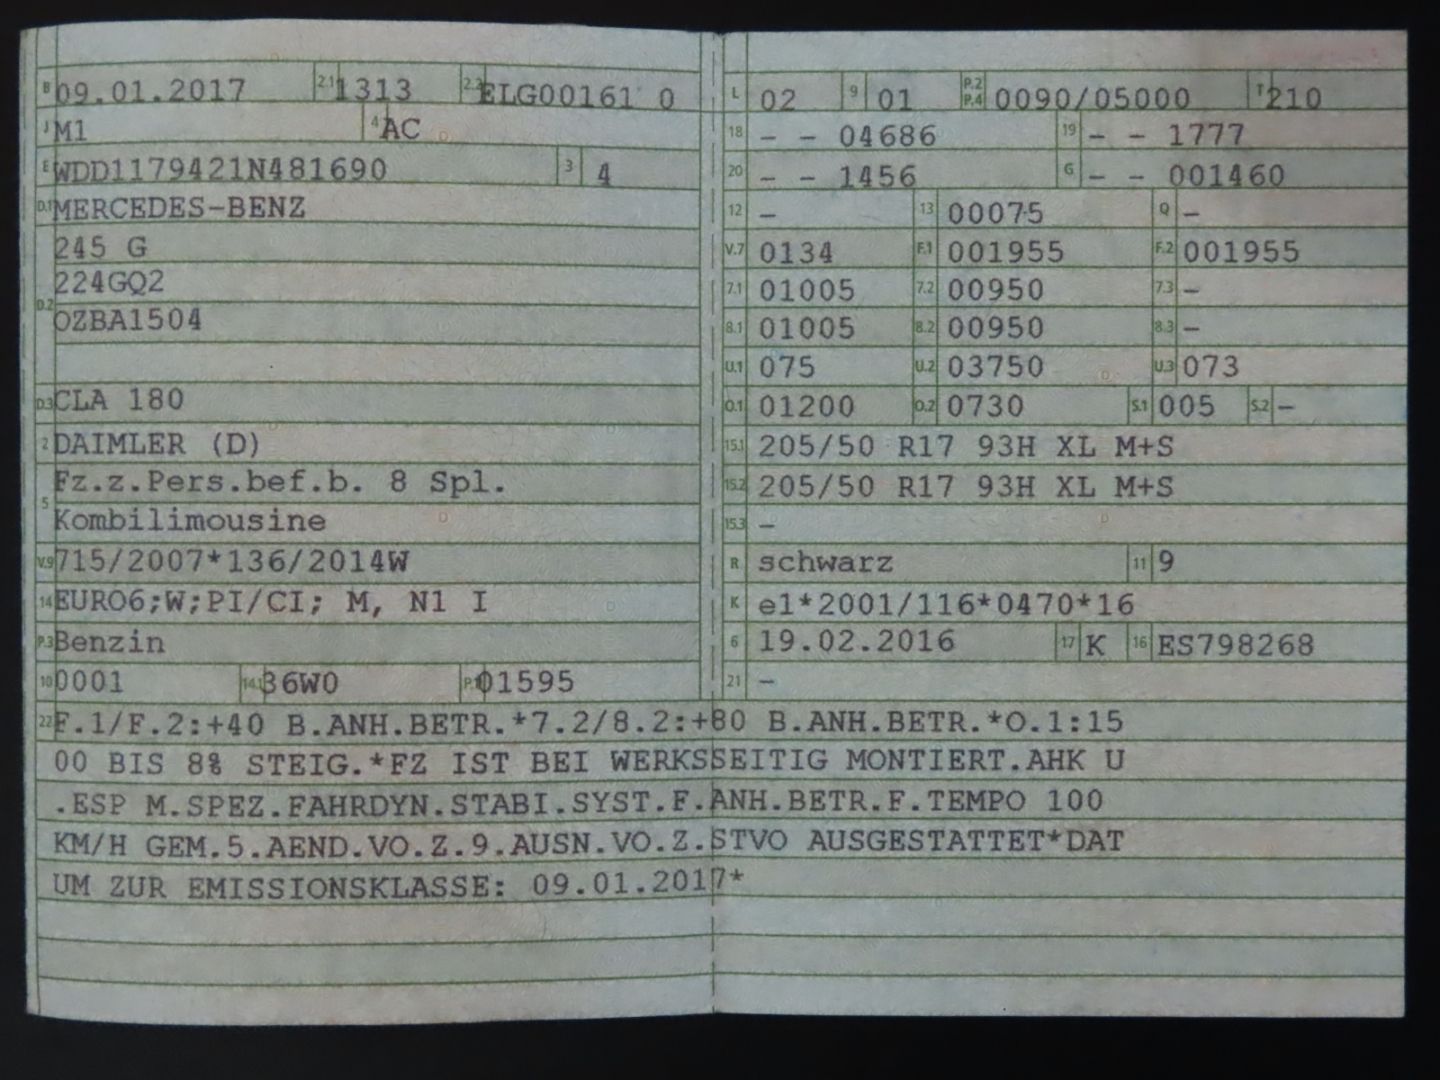 B 09.01.2017 2.1 1313 2.2 ELG00161 0
J M1 4 AC
E WDD1179421N481690 3 4
D.1 MERCEDES-BENZ
245 G
224GQ2
D.2
OZBA1504
D.3 CLA 180
2 DAIMLER (D)
Fz.z.Pers.bef.b. 8 Spl.
5
Kombilimousine
V.9 715/2007*136/2014W
14 EURO6;W;PI/CI; M, N1 I
P.3 Benzin
10 0001 14.1 36W0 P.1 01595
L 02 9 01 P.2 P.4 0090/05000 T 210
18 - - 04686 19 - - 1777
20 - - 1456 G - - 001460
12 - 13 00075 Q -
V.7 0134 F.1 001955 F.2 001955
7.1 01005 7.2 00950 7.3 -
8.1 01005 8.2 00950 8.3 -
U.1 075 U.2 03750 U.3 073
O.1 01200 O.2 0730 S.1 005 S.2 -
15.1 205/50 R17 93H XL M+S
15.2 205/50 R17 93H XL M+S
15.3 -
R schwarz 11 9
K e1*2001/116*0470*16
6 19.02.2016 17 K 16 ES798268
21 -
22 F.1/F.2:+40 B.ANH.BETR.*7.2/8.2:+80 B.ANH.BETR.*O.1:15
00 BIS 8% STEIG.*FZ IST BEI WERKSSEITIG MONTIERT.AHK U
.ESP M.SPEZ.FAHRDYN.STABI.SYST.F.ANH.BETR.F.TEMPO 100
KM/H GEM.5.AEND.VO.Z.9.AUSN.VO.Z.STVO AUSGESTATTET*DAT
UM ZUR EMISSIONSKLASSE: 09.01.2017*